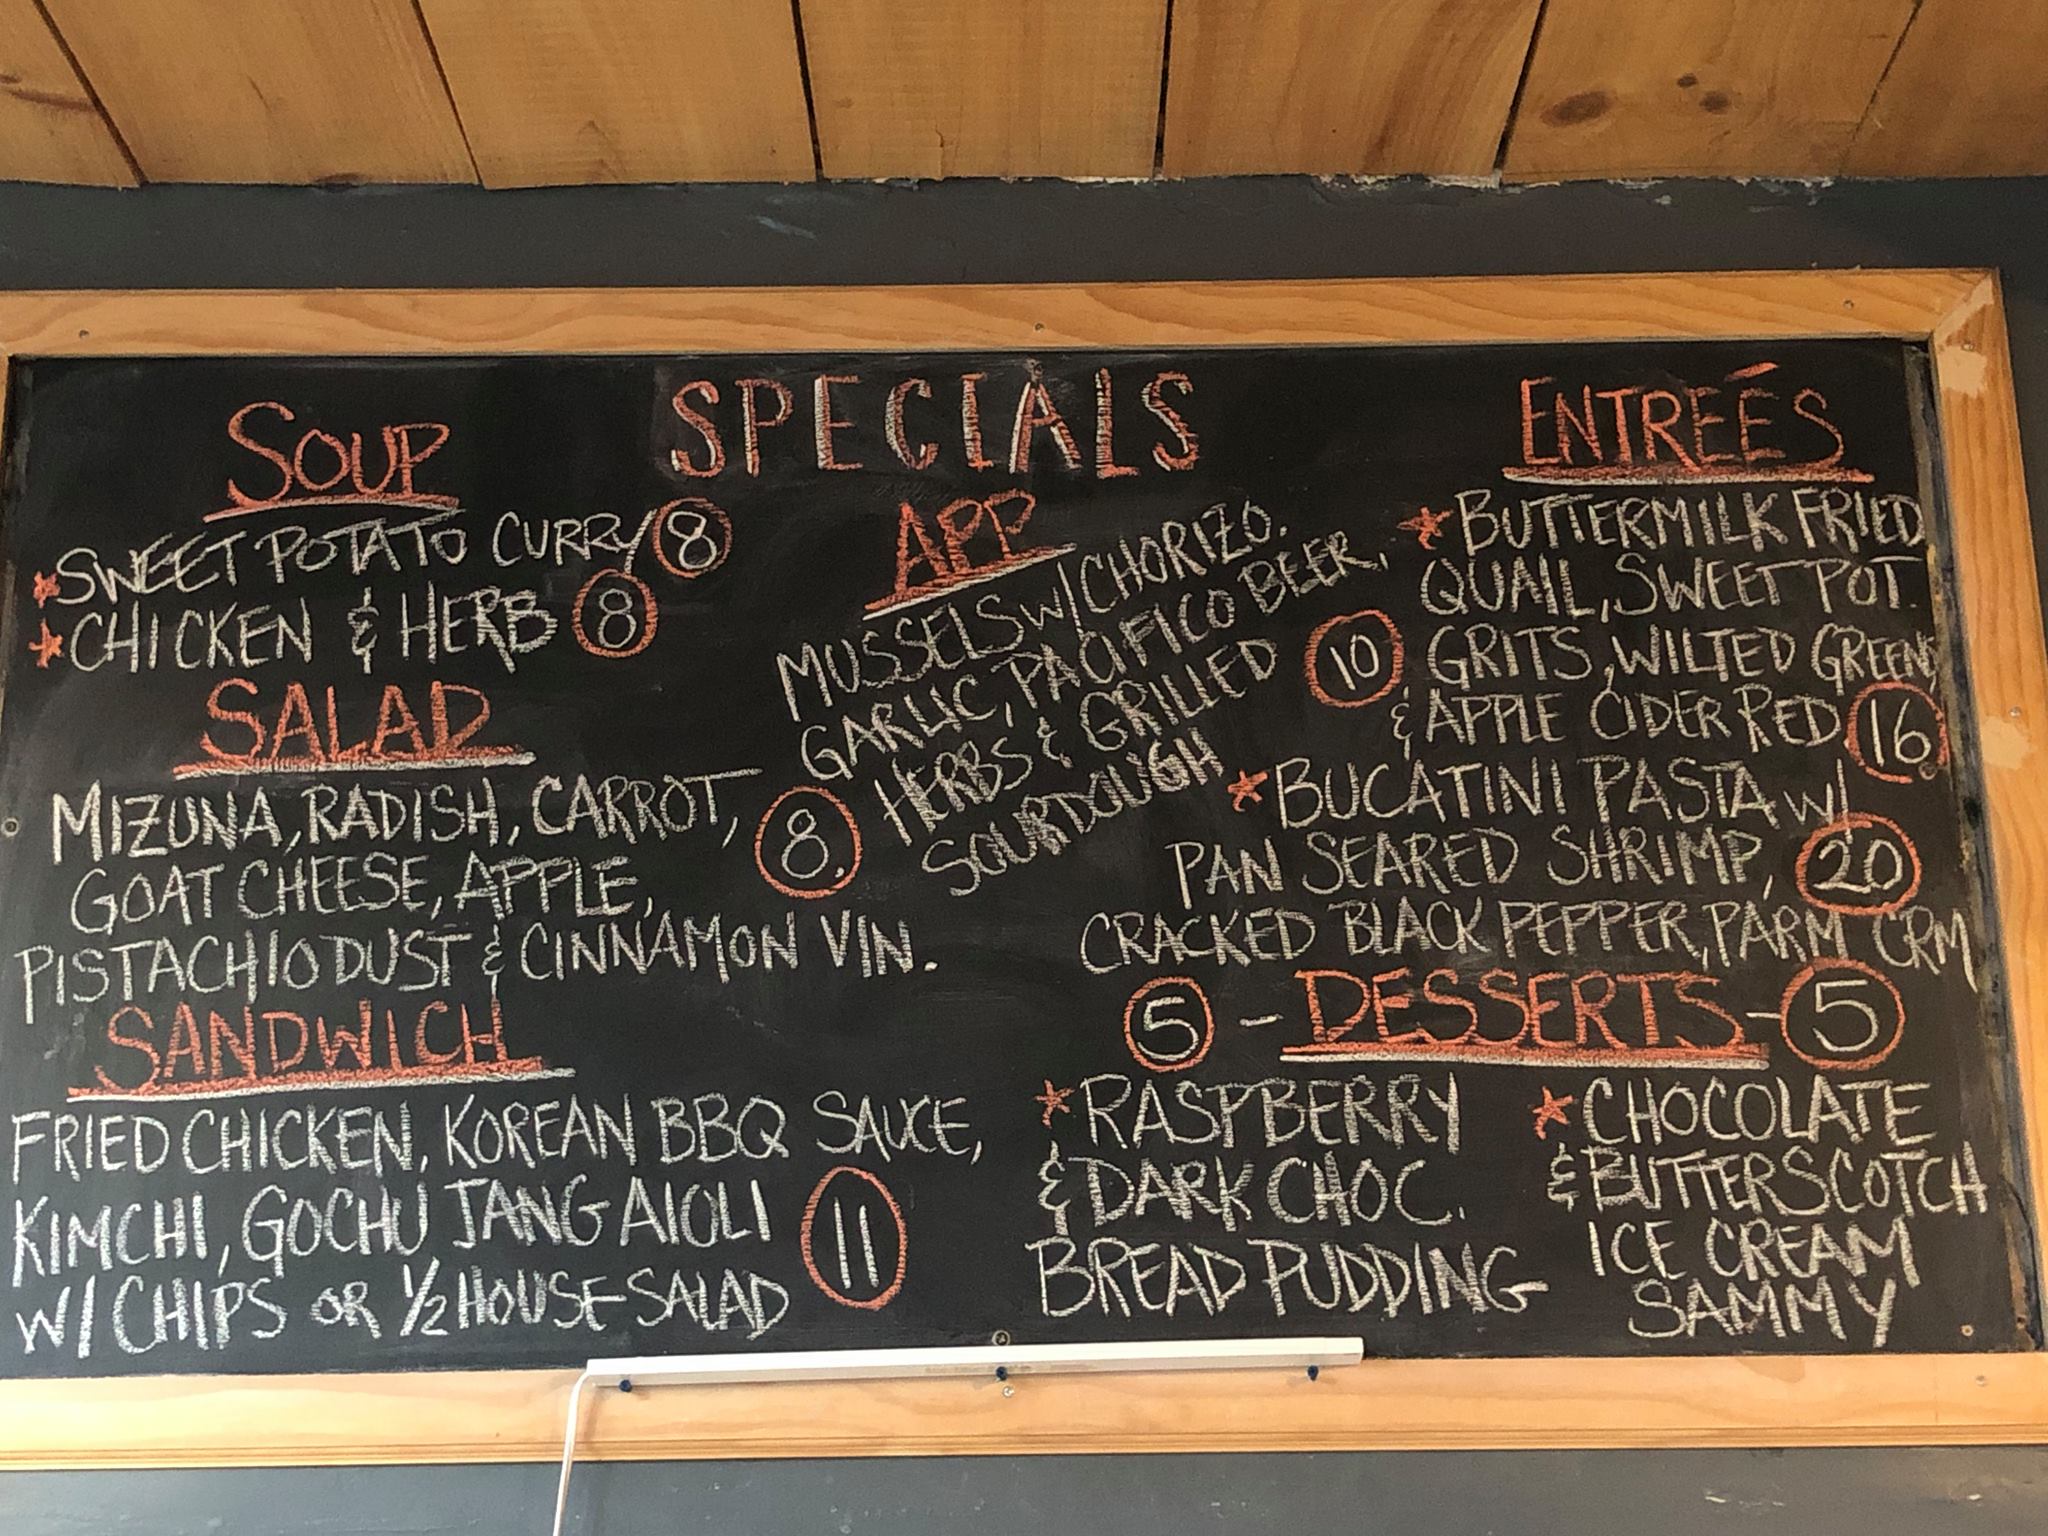 SPECIALS
SOUP
*SWEET POTATO CURRY 8
*CHICKEN & HERB 8
SALAD
MIZUNA, RADISH, CARROT,
GOAT CHEESE, APPLE, 8.
PISTACHIO DUST & CINNAMON VIN.
SANDWICH
FRIED CHICKEN, KOREAN BBQ SAUCE,
KIMCHI, GOCHU JANG AIOLI
W/ CHIPS OR 1/2 HOUSE SALAD 11
APP
MUSSELS W/ CHORIZO.
GARLIC, PACIFICO BEER,
HERBS & GRILLED 10
SOURDOUGH
ENTREÉS
*BUTTERMILK FRIED
QUAIL, SWEET POT.
GRITS, WILTED GREENS
& APPLE CIDER RED. 16.
*BUCATINI PASTA W/
PAN SEARED SHRIMP, 20
CRACKED BLACK PEPPER, PARM CRM
5 - DESSERTS - 5
*RASPBERRY
& DARK CHOC.
BREAD PUDDING
*CHOCOLATE
& BUTTERSCOTCH
ICE CREAM
SAMMY